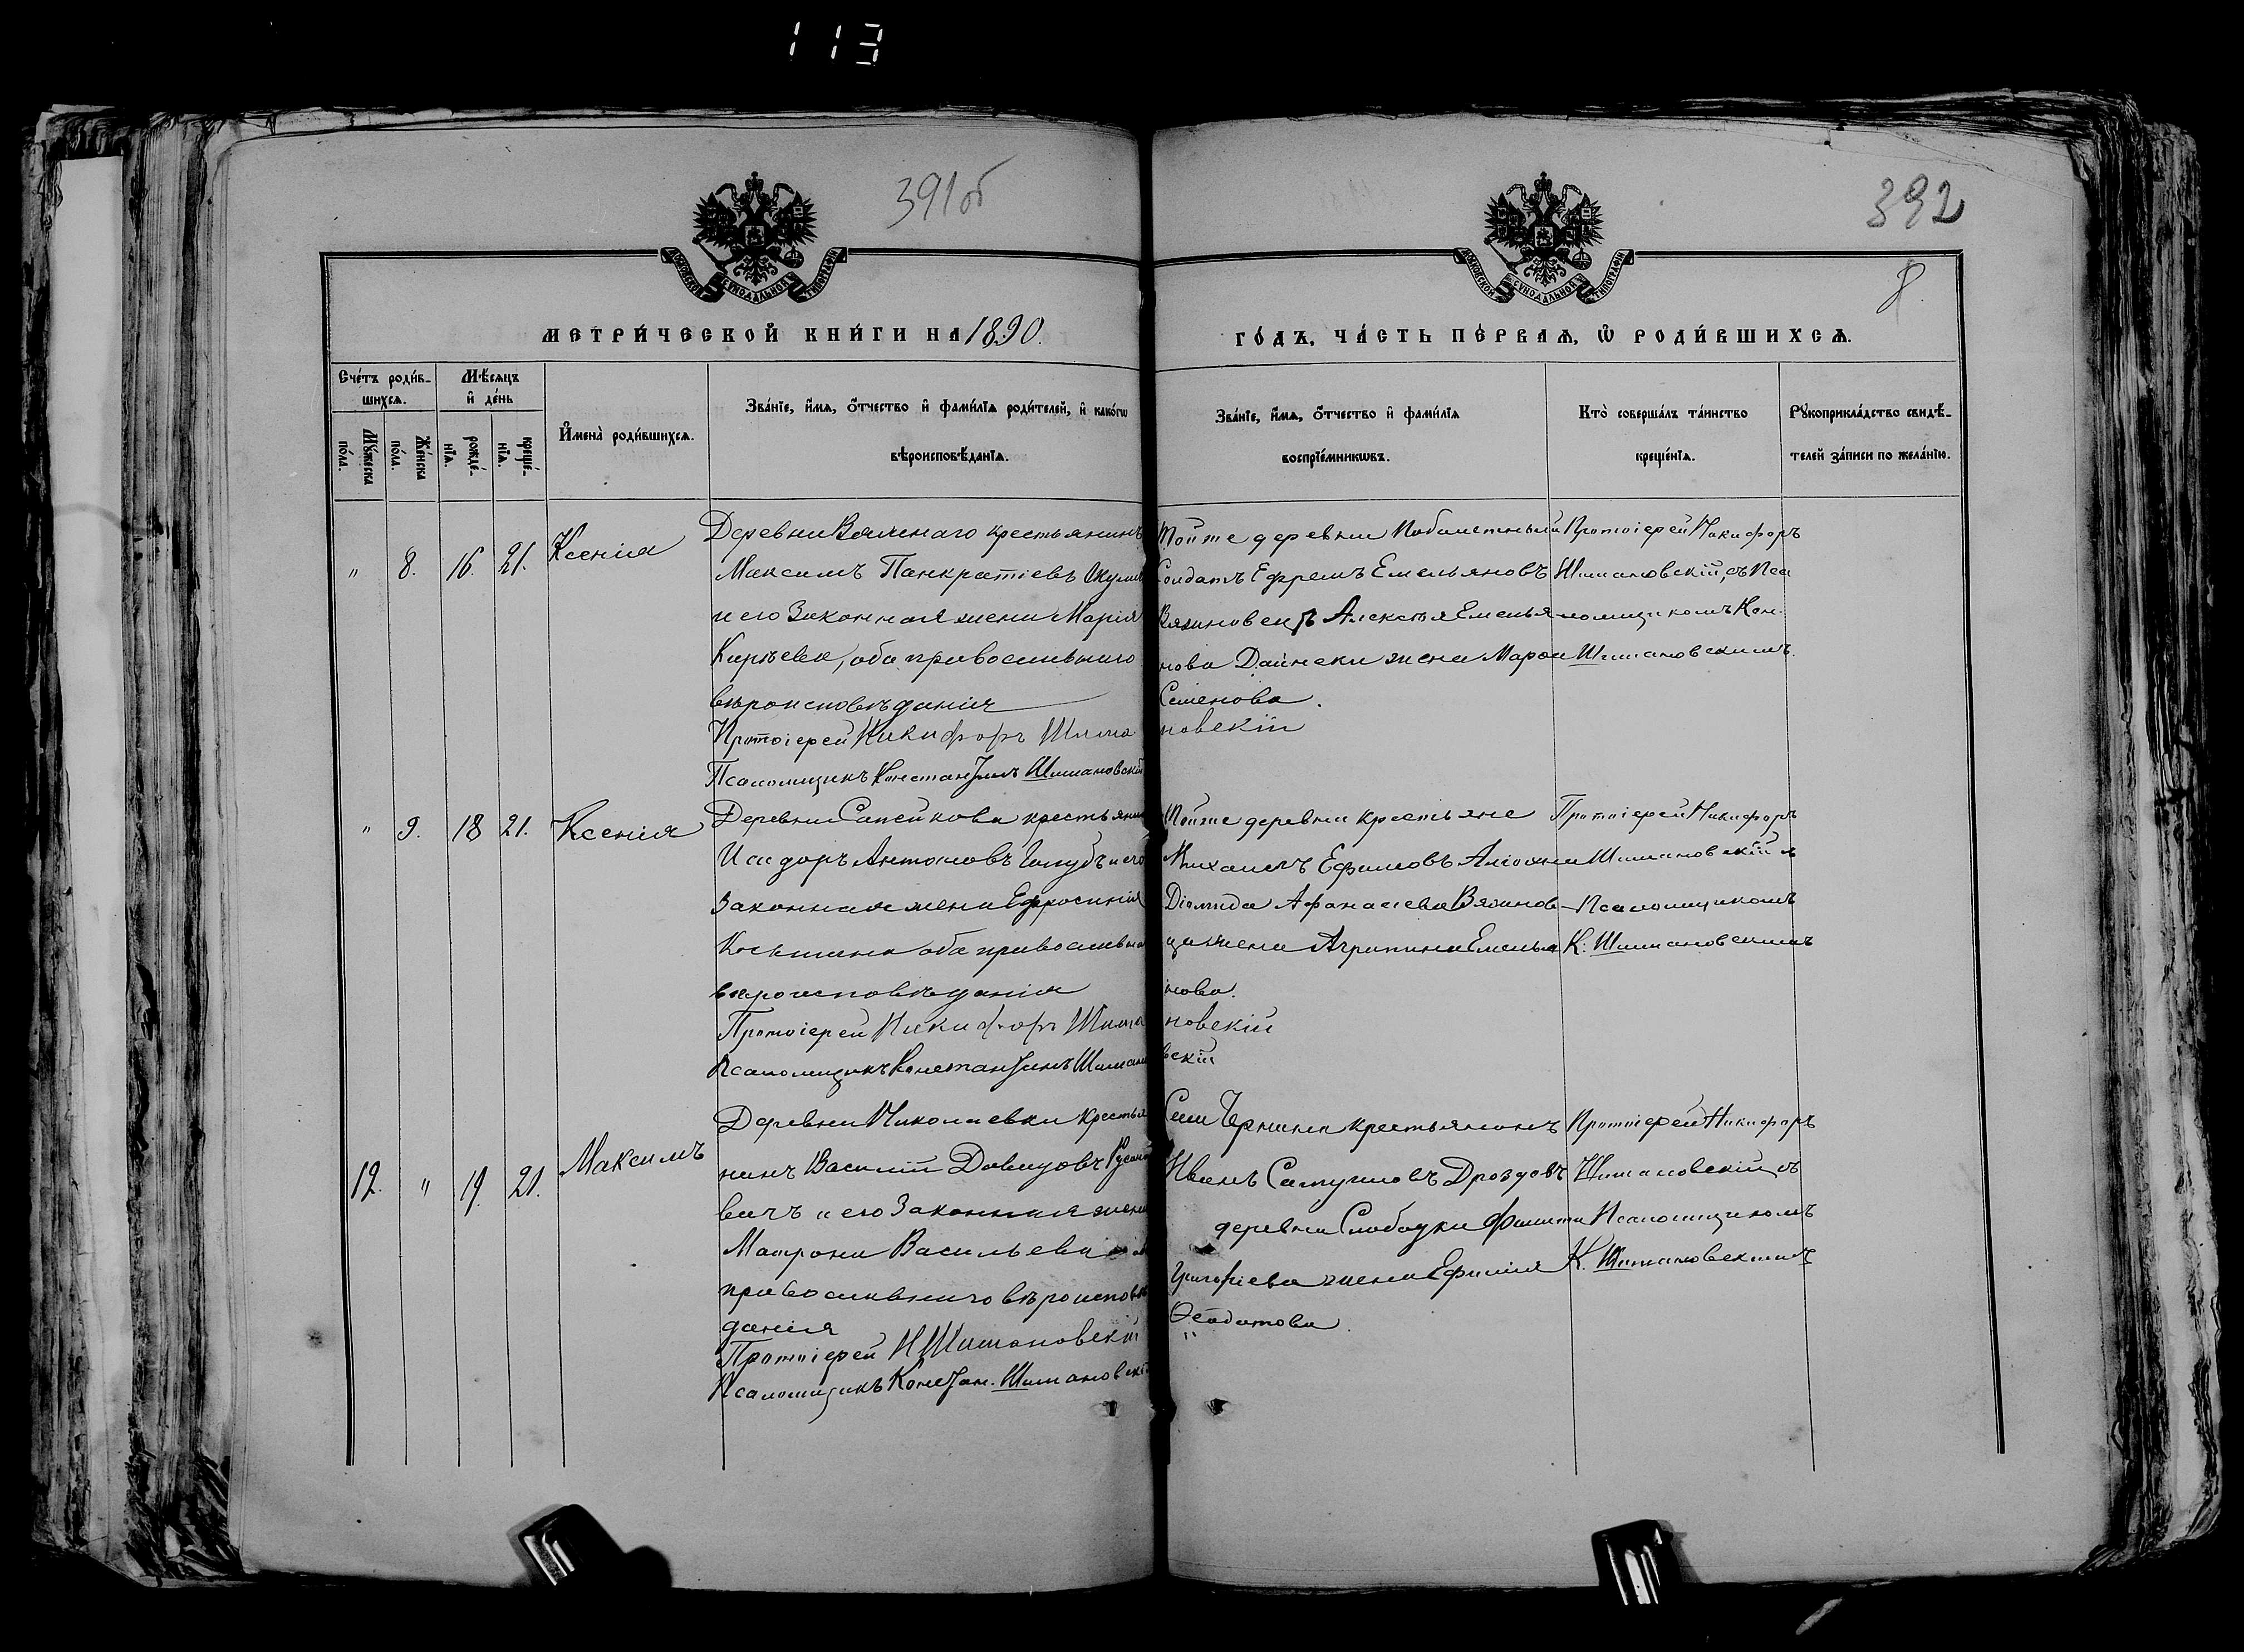 113
391 об
392
8.
МОСКОВСКОЙ СѴНОДАЛЬНОЙ ТИПОГРАФІИ
МОСКОВСКОЙ СѴНОДАЛЬНОЙ ТИПОГРАФІИ
МЕТРИ́ЧЕСКОЙ КНИ́ГИ НА 1890.
ГО́ДЪ, ЧА́СТЬ ПЕ́РВАѦ, Ѡ РОДИ́ВШИХСѦ.
Сче́тъ роди́в-
шихсѧ.
Мꙋ́жеска по́ла.
Же́нска по́ла.
Мѣ́сѧцъ
и҆ де́нь
рожде́-
нїѧ.
креще́-
нїѧ.
И҆мена̀ роди́вшихсѧ.
Зва́нїе, и҆́мѧ, ѻ҆́тчество и҆ фами́лїѧ роди́телей, и҆ како́гѡ
вѣроисповѣ́данїѧ.
Зва́нїе, и҆́мѧ, ѻ҆́тчество и҆ фами́лїѧ
воспрїе́мникѡвъ.
Кто̀ соверша́лъ та́инство
креще́нїѧ.
Рꙋкоприкла́дство свидѣ́-
телей за́писи по жела́нїю.
" 8. 16. 21. Ксенія
Деревни Вязмнаго крестьянинъ
Максимъ Панкратіевъ
и его Законная жена Марія
Киріева, оба православнаго
вѣроисповѣданія
Протоіерей Никифоръ Шима
новскій
Псаломщикъ Константинъ Шимановскій
Тойже деревни
Солдатъ Ефремъ Емельяновъ
Вязиновецъ Алексѣя Емелья
нова Дайнеки жена Марѳа
Семенова.
Протоіерей Никифоръ
Шимановскій, съ Пса
ломщикомъ Кон.
Шимановскимъ.
" 9. 18 21. Ксенія
Деревни Сапейкова крестьянин
Исидоръ Антоновъ Голубъ и его
Законная жена Ефросинія
Косьмина оба православна
вѣроисповѣданія
Протоіерей Никифоръ Шима
новскій
Псаломщикъ Константинъ Шимано
вскій
Тойже деревни крестьяне
Михаилъ Ефимовъ
Діомида Афанасіева Вязинов-
ца жена Агрипина Емелья
нова.
Протоіерей Никифоръ
Шимановскій съ
Псаломщикомъ
К. Шимановскимъ
12. " 19. 21. Максимъ
Деревни Николаевки крестья
нинъ Василій Давидовъ
вичъ и его Законная жена
Матрона Васильева
православнаго вѣроисповѣ
данія
Протоіерей Н Шимановскій
Псаломщикъ Констан. Шимановскій
Села Чернина крестьянинъ
Иванъ Самуиловъ Дроздовъ
деревни Слободки
Григоріева жена Ефимія
Ѳеодотова.
Протоіерей Никифоръ
Шимановскій, съ
Псаломщикомъ
К. Шимановскимъ